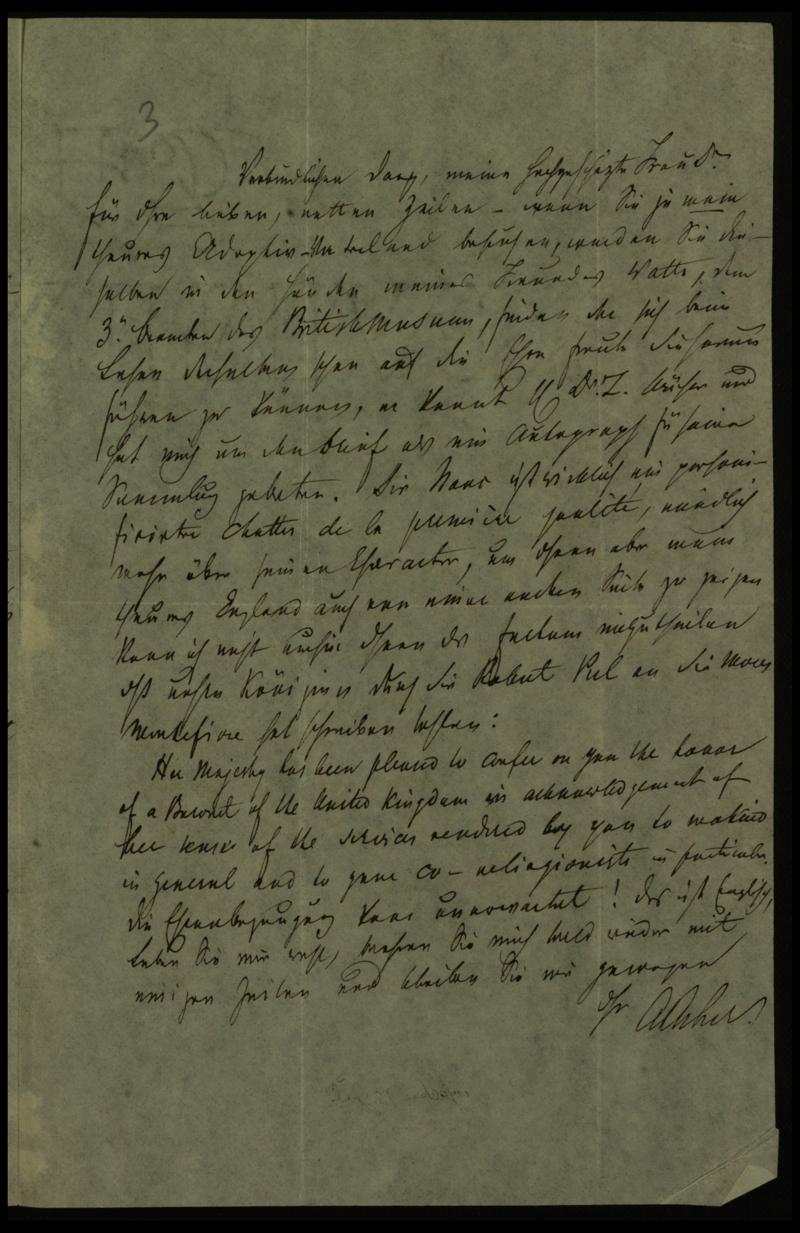 3
Verbindlichsten Dank, meine hochgeschätzte Freundin
für Ihre lieben, netten Zeilen – wenn Sie je mein
theures Adoptiv-Vaterland besuchen, werden Sie die-
selben in den Händen meines Freundes Watts, dem
3t. Beamten des British Museum, finden der sich beim
Lesen derselben schon auf die Ehre freute Sie herum
führen zu können, er kennt Dr. Z. Bücher und
hat mich um den Brief als ein Autograph für seine
Sammlung gebeten. Der Mann ist wirklich ein personi-
ficirter de la première qualité, mündlich
mehr über seinen Character, um Ihnen aber mein
theures England auch von einer andern Seite zu zeigen
kann ich nicht umhin Ihnen das Factum mitzutheilen
daß unsre Königin durch Sir Robert Peel an Sir Moses
Montefiore hat schreiben lassen:
Her Majesty has been pleased to confer on you the honor
of a Baronet of the United Kingdom in acknowledgement of
her sense of the services rendered by you to mankind
in general and to your co-religionists in particular.
die Ehrenbezeugung kam unerwartet! Das ist Englisch,
Leben Sie mir wohl, erfreuen Sie mich bald wieder mit
einigen Zeilen und bleiben Sie mir gewogen
Ihr A Asher